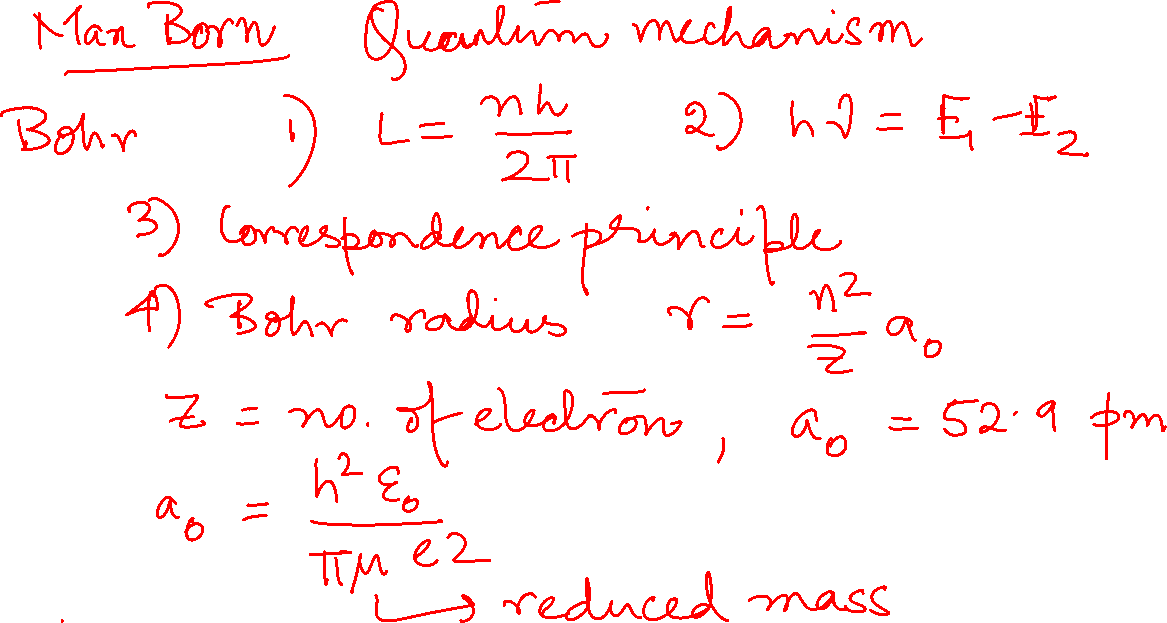 Max Born Quantum mechanism
Bohr 1) L = nh/2π 2) hν = E₁ - E₂
3) Correspondence principle
4) Bohr radius r = n²/z a₀
z = no. of electron, a₀ = 52.9 pm
a₀ = h² ε₀ / πμ e2
↳ reduced mass